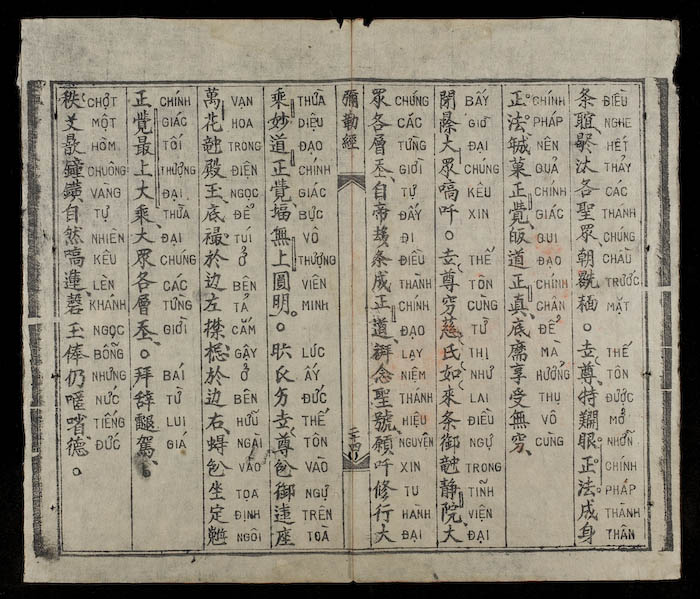 条汰各聖眾朝。世尊特眼正法成身
ĐIỀU NGHE HẾT THẢY CÁC THÁNH CHÚNG CHẦU TRƯỚC MẶT THẾ TÔN ĐƯỢC MỞ NHỠN CHÍNH PHÁP THÀNH THÂN
正法菓正覺皈道正真底享受無窮
CHÍNH PHÁP NÊN QUẢ CHÍNH GIÁC QUI ĐẠO CHÍNH CHÂN ĐỂ MÀ HƯỞNG THỤ VÔ CÙNG
閉大眾吀。世尊穷慈氏如來条御静院大
BẤY GIỜ ĐẠI CHÚNG KÊU XIN THẾ TÔN CÙNG TỪ THỊ NHƯ LAI ĐIỀU NGỰ TRONG TĨNH VIỆN ĐẠI
眾各層自帝条成正道念聖號願吀修行大
CHÚNG CÁC TỪNG GIỜI TỰ ĐẤY ĐI ĐIỀU THÀNH CHÍNH ĐẠO LẠY NIỆM THÁNH HIỆU NGUYỆN XIN TU HANH ĐẠI
彌勒經
二十四
乘妙道正覺堛無上圓明。世尊御蓮座
THỪA DIỆU ĐẠO CHÍNH GIÁC BỰC VÔ THƯỢNG VIÊN MINH LÚC ẤY ĐỨC THẾ TÔN VÀO NGỰ TRÊN TOÀ
萬花殿玉底於边左於边右坐定
VẠN HOA TRONG ĐIỆN NGỌC ĐỂ TÚI Ở BÊN TẢ CẮM GẬY Ở BÊN HỮU NGÀI VÀO TỌA ĐỊNH NGÔI
正覺最上大乘大眾各層。拜辞駕
CHÍNH GIÁC TỐI THƯỢNG ĐẠI THỪA ĐẠI CHÚNG CÁC TỪNG GIỜI BÁI TỪ LUI GIÁ
秩鐘鐄自然嗃蓮磬玉俸仍㗂德。
CHỢT MỘT HÔM CHUÔNG VÀNG TỰ NHIÊN KÊU LÊN KHÁNH NGỌC BỖNG NHƯNG NỨC TIẾNG ĐỨC